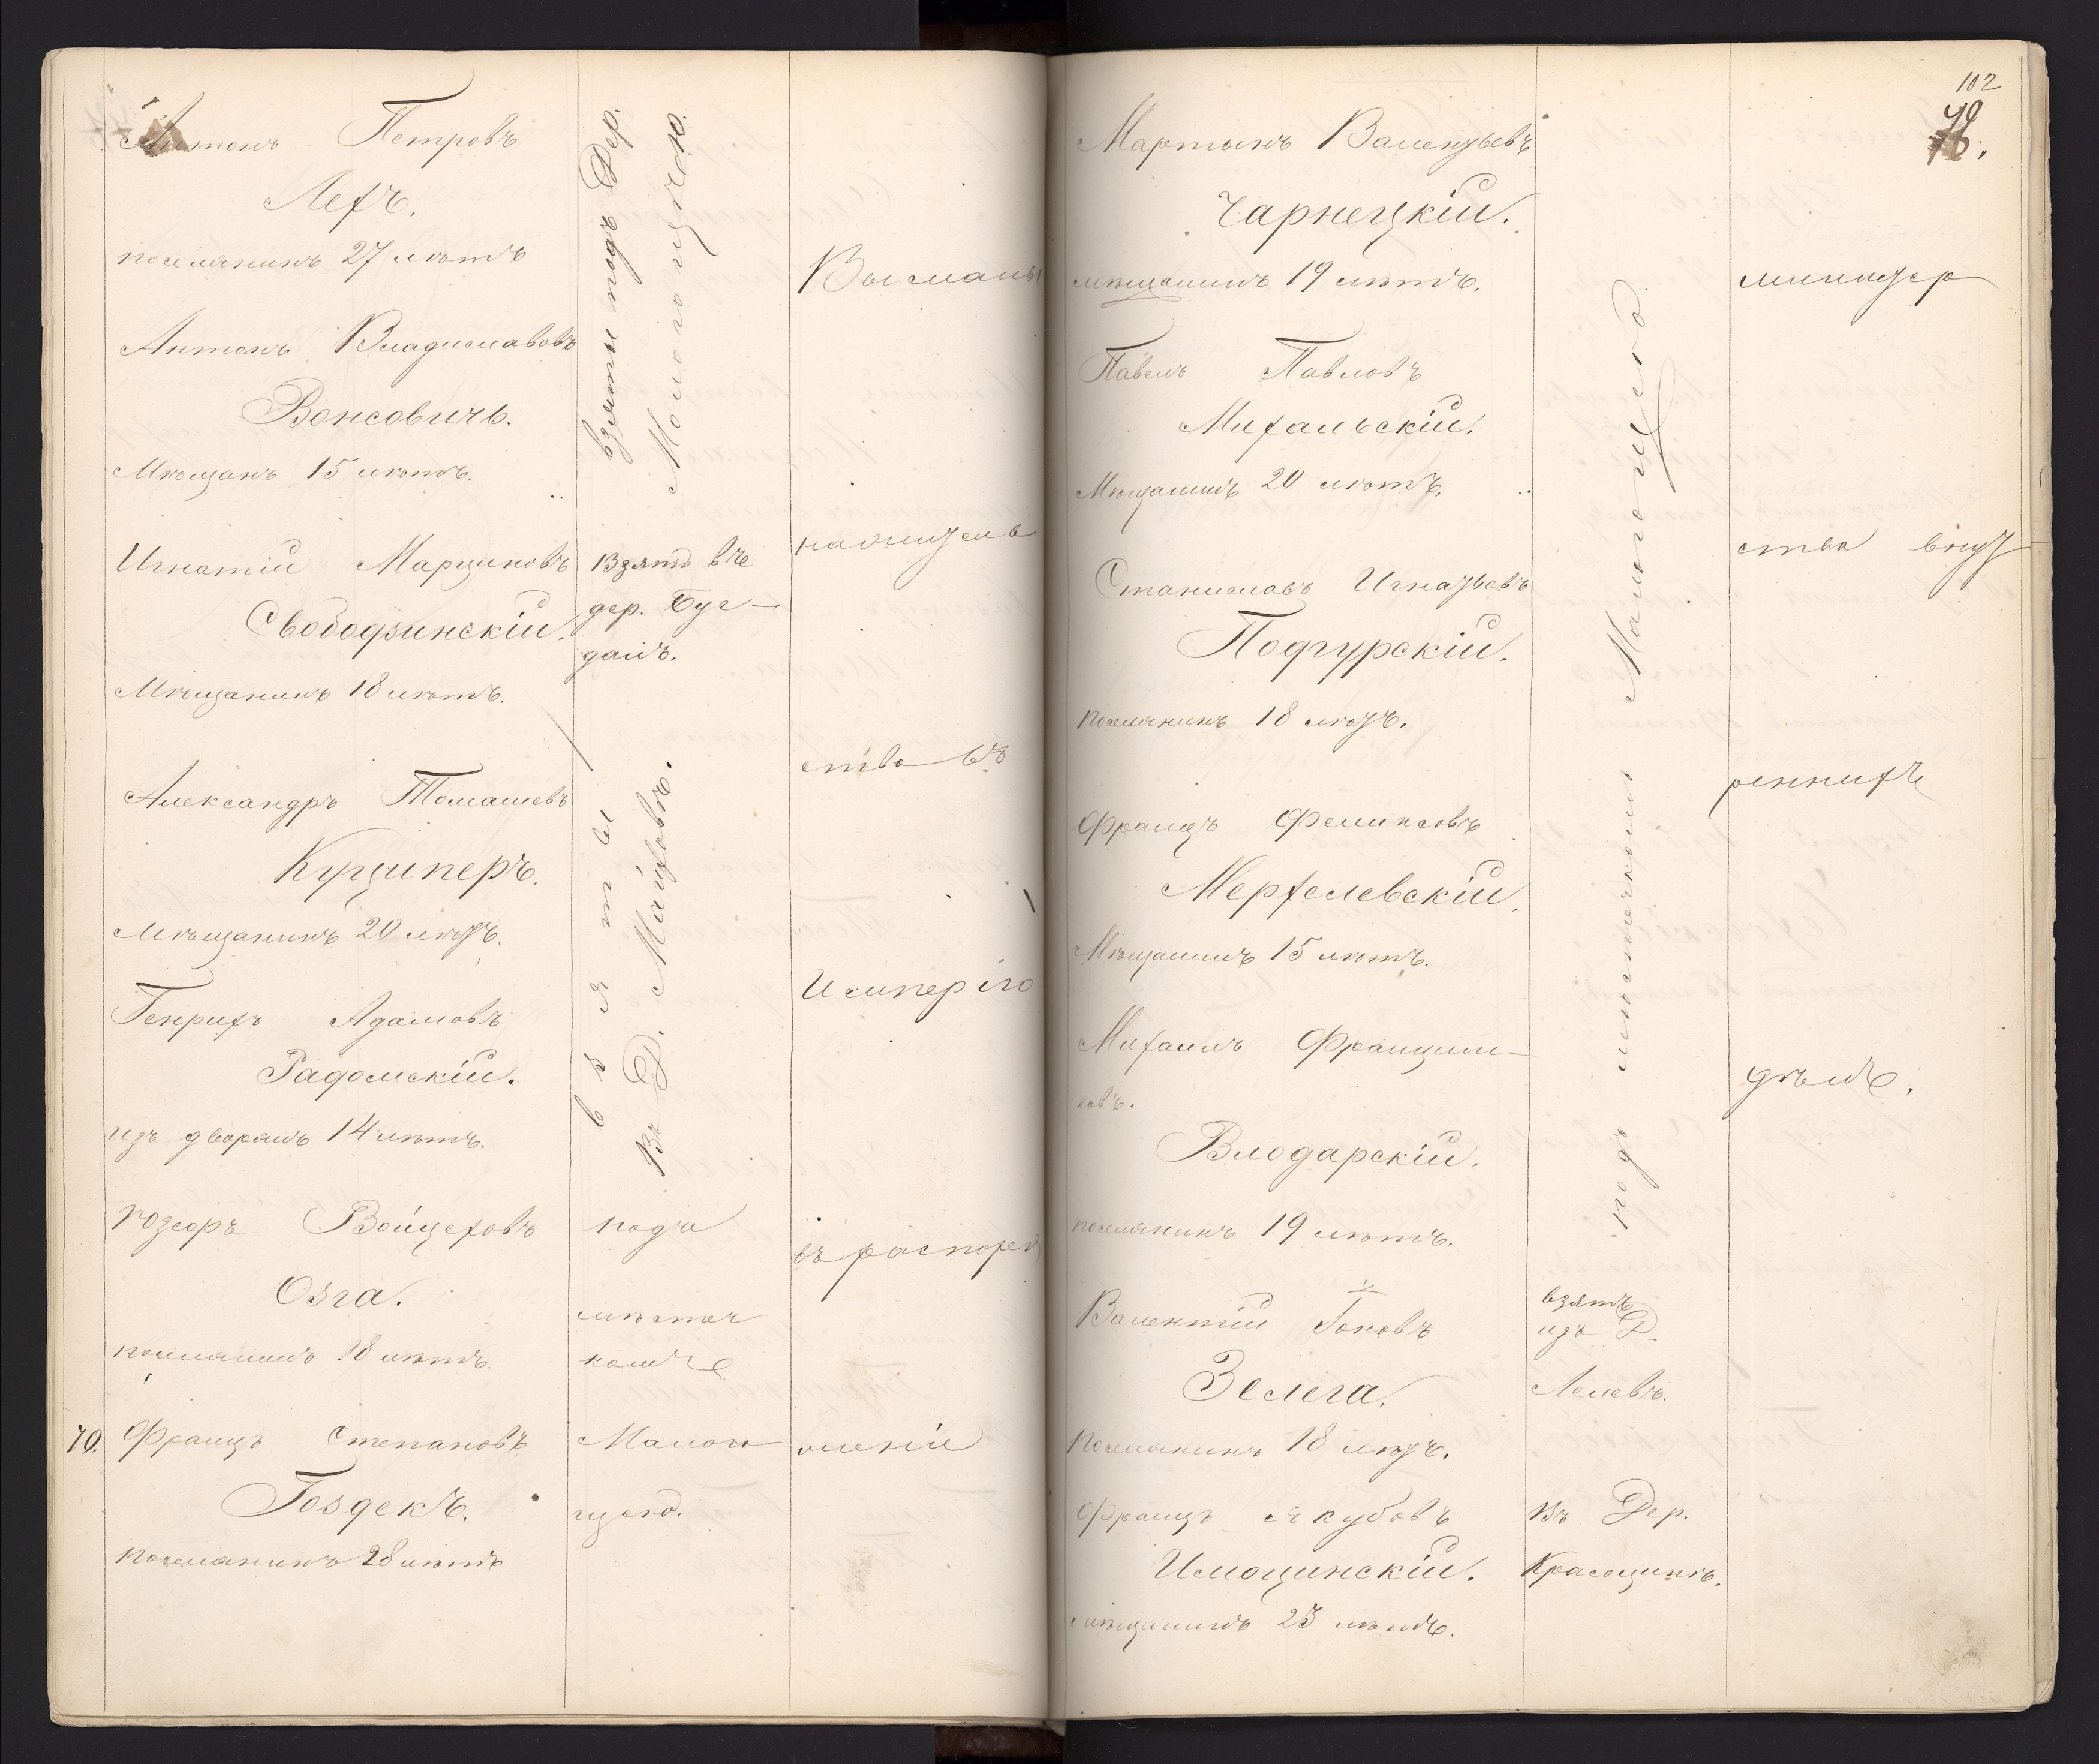 Антонъ Петровъ
Лехъ.
поселянинъ 27 лѣтъ
Антонъ Владиславовъ
Вонсовичъ.
Мѣщанъ 15 лѣтъ.
Игнатій Марциновъ
Свободзинскій.
Мѣщанинъ 18 лѣтъ.
Александръ Томашевъ
Куциперъ.
Мѣщанинъ 20 лѣтъ.
Генрихъ Адамовъ
Радомскій.
изъ дворянъ 14 лѣтъ.
Юзефъ Войцеховъ
Озга.
поселянинъ 18 лѣтъ.
70. Францъ Степановъ
Гоздекъ.
поселянинъ 28 лѣтъ
взяты подъ Дер.
Малогощею.
Взятъ въ
дер.
взяты
Въ Д.
подъ
мѣстеч
комъ
Малого
щею.
Высланы
на жительс
ство въ
Имперію
въ распоряж
оженіе
102
Мартынъ Валентьевъ
Чарнецкій.
мѣщанинъ 19 лѣтъ.
Павелъ Павловъ
Михальскій.
Мѣщанинъ 20 лѣтъ.
Станиславъ Игнатьевъ
Подгурскій.
поселянинъ 18 лѣтъ.
Францъ Феликсовъ
Мерхелевскій.
Мѣщанинъ 15 лѣтъ.
Михаилъ Франциш-
ковъ.
Влодарскій.
поселянинъ 19 лѣтъ.
Валентій Яновъ
Зелега.
Поселянинъ 18 лѣтъ.
Францъ Якубовъ
Имоцинскій.
мѣщанинъ 23 лѣтъ.
подъ мѣстечкомъ Малогощею.
взятъ
изъ Д.
Въ Дер.
Красоцинъ.
министер
ства внут
реннихъ
дѣлъ.